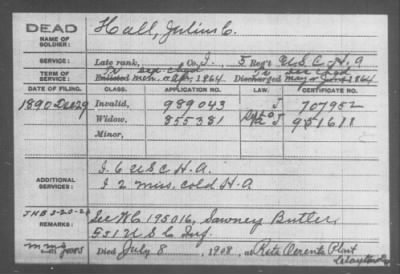 DEAD
NAME OF SOLDIER: Hall, Julius C.
SERVICE: Late rank, Co. I, 5 Reg't U.S.C.H.A
TERM OF SERVICE: Enlisted 1864 Discharged 1864
DATE OF FILING. CLASS. APPLICATION NO. LAW. CERTIFICATE NO.
1890 Dec 29 Invalid, 989043 J 707952
Widow, 855381 J 951618
Minor,
ADDITIONAL SERVICES: I. 6 U S C H. A.
I 2 Miss. cold H. A
JHB 3-20-
REMARKS: See WC 195016, Sawney Butler,
55 U S C Inf.
Died July 8, 1908, at